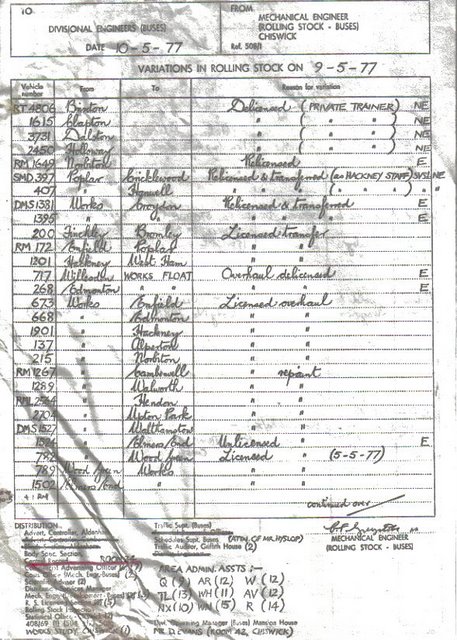 TO
DIVISIONAL ENGINEERS (BUSES)
DATE 10-5-77
FROM
MECHANICAL ENGINEER
(ROLLING STOCK - BUSES)
CHISWICK
Ref. 508/1
VARIATIONS IN ROLLING STOCK ON 9-5-77
Vehicle number From To Reason for variation
RT 4806 Brixton Delicensed (PRIVATE TRAINER) NE
1615 Clapton " ( " " ) NE
3731 Dalston " ( " " ) NE
2450 Holloway " ( " " ) NE
RM 1649 Norbiton Relicensed E
SMD 397 Poplar Cricklewood Relicensed & transferred (as HACKNEY STAFF) SVSL NE
407 " Hanwell " " " ( " " ) " "
DMS 1381 Works Croydon Relicensed & transferred E
1395 " " " " E
200 Finchley Bromley Licensed transfer
RM 172 Enfield Poplar " "
1301 Hackney West Ham " "
717 Willesden WORKS FLOAT Overhaul delicensed E
268 Edmonton " " " E
673 Works Enfield Licensed overhaul
668 " Edmonton " "
1901 " Hackney " "
137 " Alperton " "
215 " Norbiton " "
RM 1267 " Camberwell " repaint
1289 " Walworth " "
RML 2564 " Hendon " "
2704 " Upton Park " "
DMS 1527 " Walthamstow " "
1584 " Elmers End Unlicensed " E
782 " Wood Green Licensed " (5-5-77)
789 Wood Green Works " "
1502 Elmers End " " "
continued over
DISTRIBUTION
Advert. Controller, Aldenham
Body Spec. Section
ROOM 52
Commercial Advertising Officer
Cous Office (Mech. Engr. Buses) (2)
Scientific Adviser (2)
R. S. Licensing Section (5)
Rolling Stock
WORKS STUDY CHISWICK (1)
Traffic Supt. (Buses)
Schedules Supt. Buses (ATTN. OF MR HYSLOP)
Traffic Auditor, Griffith House (2)
AREA ADMIN. ASSTS :-
Q (9) AR (12) W (12)
TL (13) WH (11) AV (12)
NX (10) WN (15) R (14)
Operating Manager (Buses) Mansion House
MR D. EVANS (ROOM 42, CHISWICK)
MECHANICAL ENGINEER
(ROLLING STOCK - BUSES)